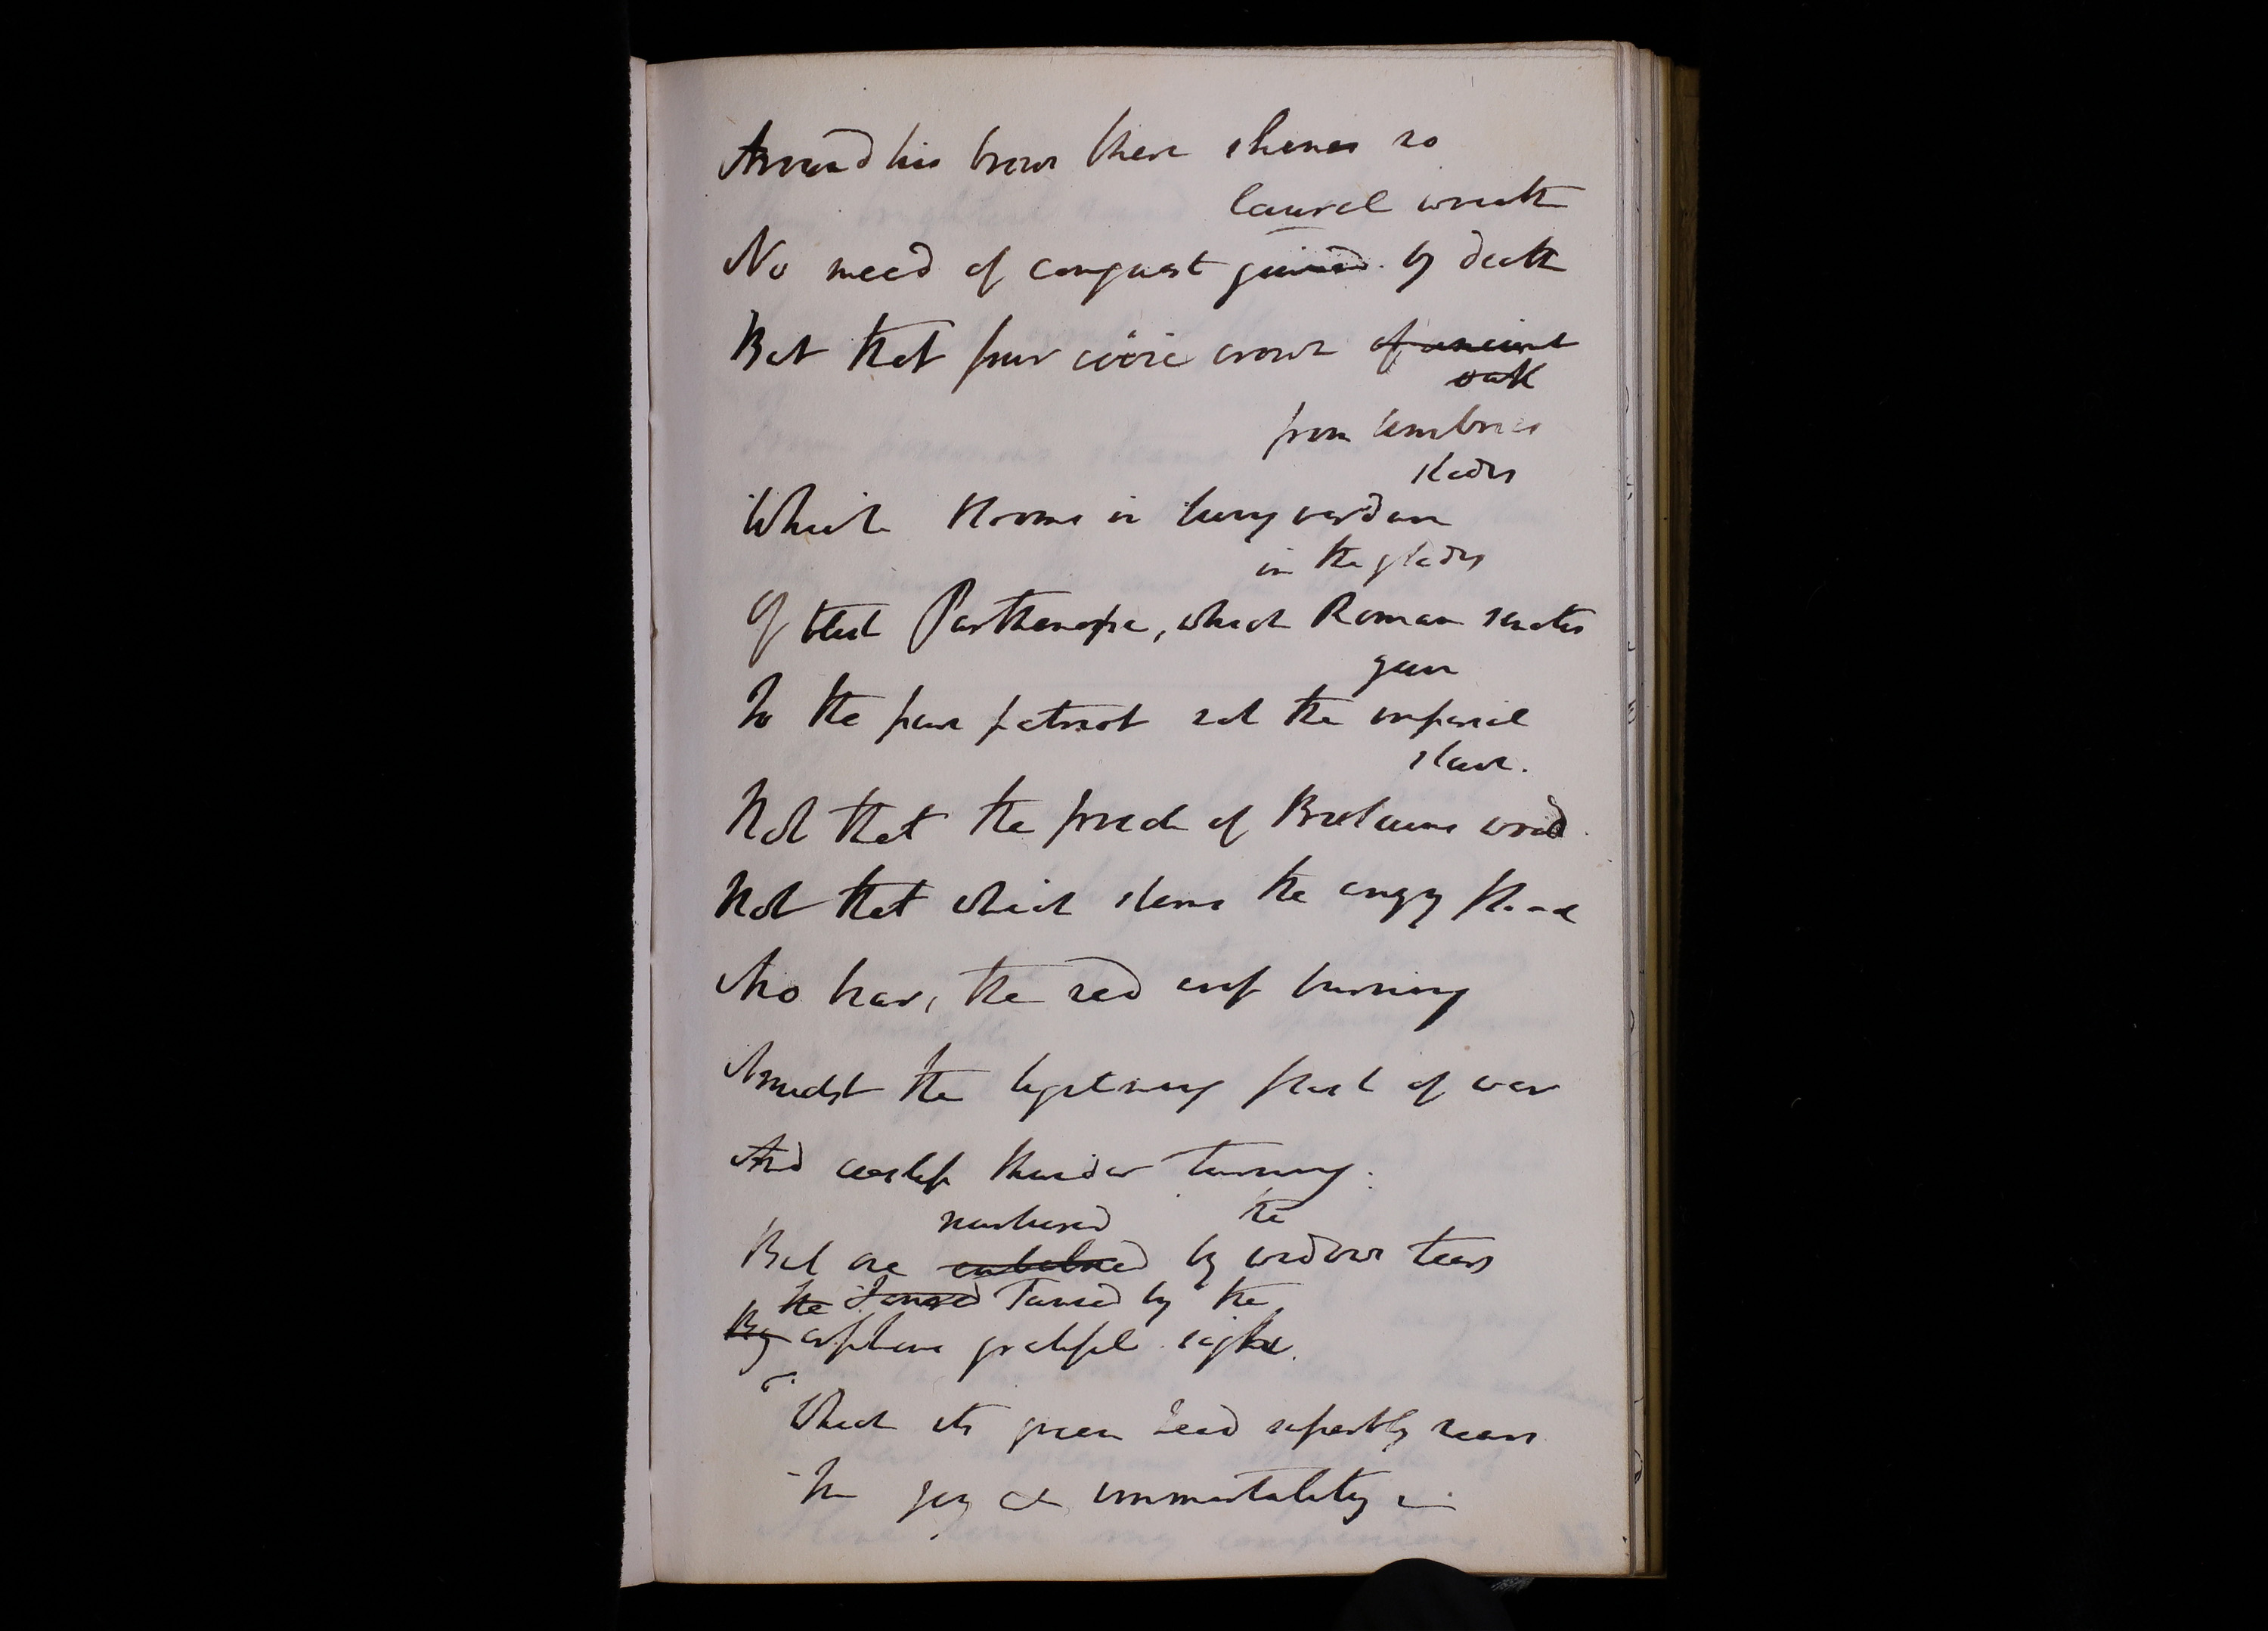 Around his brow there shines no
laurel wreath
No meed of conquest gained by death
But that pure civic crown of ancient
oak
from Umbrias
shades
Which blooms in living verdure
in the glades
Of blest Parthenope, which Roman senates
gave
To the pure patriot not the imperial
slave.
Not that the produce of wood
Not that which stems the angry flood
Nor bears the red cross burning
Amidst the lightning flash of war
And ceasless thunder turning.
nurtured the
But one embalmed by widows tears
the Fanned Fanned by the
By orphans grateful sighs.
Which its green head superbly rears
In joy & immortality